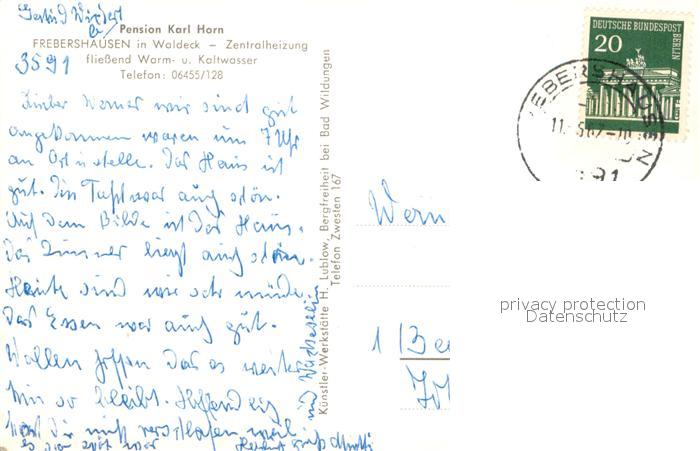 Gertrud
b/
Pension Karl Horn
FREBERSHAUSEN in Waldeck – Zentralheizung
fließend Warm- u. Kaltwasser
Telefon: 06455/128
3591
Lieber Werner wir sind gut
angekommen waren um 7 Uhr
an Ort u stelle. Das Haus ist
gut. Die war auch schön.
Auf dem Bilde ist das Haus.
Das Zimmer liegt auch schön.
Heute sind wir sehr müde.
Das Essen war auch gut.
Wollen hoffen das es weiter
hin so bleibt. Hoffendlich
hast Du nicht verschlafen weil
es so spät war
Künstler-Werkstätte H. Lublow, Bergfreiheit bei Bad Wildungen
Telefon Zwesten 167
DEUTSCHE BUNDESPOST
BERLIN
20
EBERSHAUSEN
11.
Wern
1 Be
privacy protection
Datenschutz